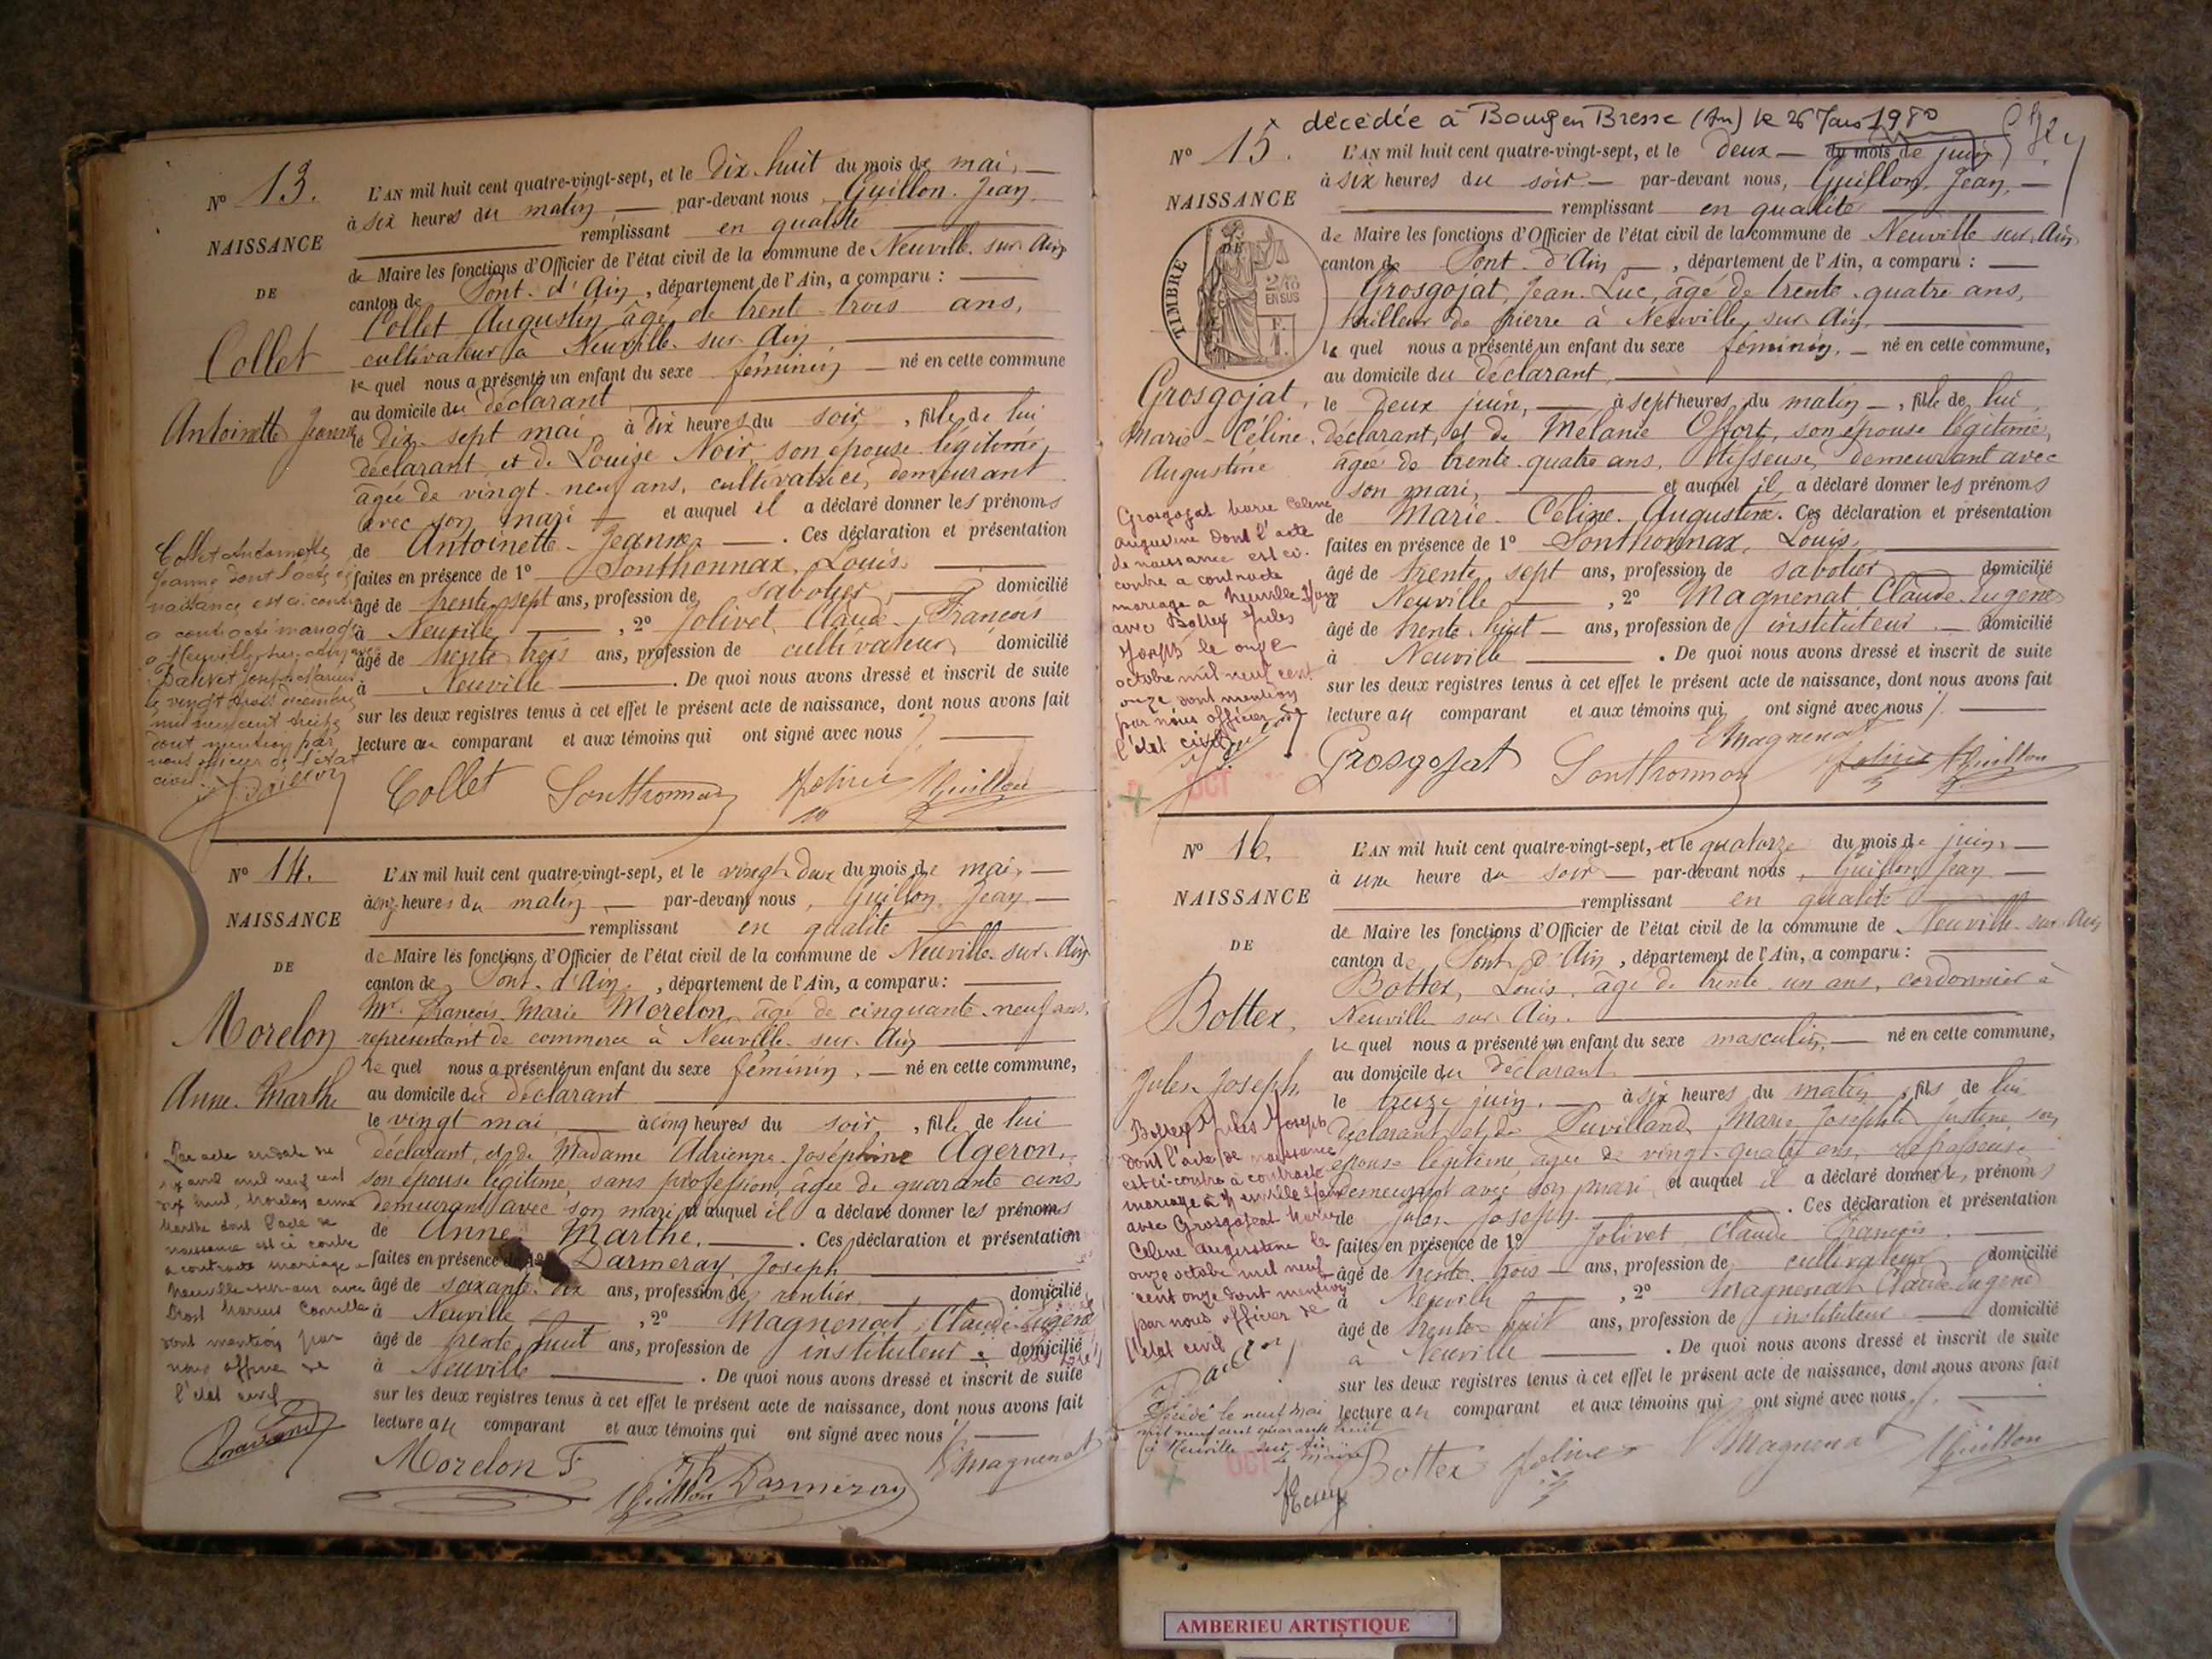 N° 13.
NAISSANCE
DE
Collet
Antoinette Jeanne
L'AN mil huit cent quatre-vingt-sept, et le dix-huit du mois de mai,
à six heures du matin par-devant nous Guillon Jean
remplissant en qualité
de Maire les fonctions d'Officier de l'état civil de la commune de Neuville-sur-Ain
canton de Pont-d'Ain, département de l'Ain, a comparu :
Collet Augustin âgé de trente-trois ans,
cultivateur à Neuville-sur-Ain,
lequel nous a présenté un enfant du sexe féminin né en cette commune
au domicile du déclarant
le dix-sept mai, à dix heures du soir, fille de lui
déclarant et de Louise Noir, son épouse légitime,
âgée de vingt-neuf ans, cultivatrice, demeurant
avec son mari et auquel il a déclaré donner les prénoms
de Antoinette-Jeanne. Ces déclaration et présentation
faites en présence de 1° Sonthonnax, Louis,
âgé de trente-sept ans, profession de sabotier, domicilié
à Neuville, 2° Jolivet, Claude-François
âgé de trente-trois ans, profession de cultivateur, domicilié
à Neuville. De quoi nous avons dressé et inscrit de suite
sur les deux registres tenus à cet effet le présent acte de naissance, dont nous avons fait
lecture au comparant et aux témoins qui ont signé avec nous
Collet Antoinette
Jeanne dont l'acte de
naissance est ci contre
a contracté mariage
à Neuville-sur-Ain avec
Joseph Marius
le vingt trois décembre
mil neuf cent treize
dont mention par
nous officier de l'état
civil
Collet Sonthonnax Jolivet Guillon
N° 14.
NAISSANCE
DE
Morelon
Anne-Marthe
L'AN mil huit cent quatre-vingt-sept, et le vingt-deux du mois de mai,
à cinq heures du matin par-devant nous, Guillon Jean
remplissant en qualité
de Maire les fonctions d'Officier de l'état civil de la commune de Neuville-sur-Ain
canton de Pont-d'Ain, département de l'Ain, a comparu :
Mr. François-Marie Morelon, âgé de cinquante-neuf ans,
représentant de commerce à Neuville-sur-Ain
lequel nous a présenté un enfant du sexe féminin, né en cette commune,
au domicile du déclarant
le vingt mai à cinq heures du soir, fille de lui
déclarant, et de Madame Adrienne-Joséphine Ageron,
son épouse légitime, sans profession, âgée de quarante ans,
demeurant avec son mari et auquel il a déclaré donner les prénoms
de Anne-Marthe. Ces déclaration et présentation
faites en présence de 1° Darmeray, Joseph
âgé de soixante-dix ans, profession de rentier, domicilié
à Neuville, 2° Magnenat, Claude-Eugène
âgé de trente-huit ans, profession de instituteur, domicilié
à Neuville. De quoi nous avons dressé et inscrit de suite
sur les deux registres tenus à cet effet le présent acte de naissance, dont nous avons fait
lecture au comparant et aux témoins qui ont signé avec nous
Par acte en date du
six avril mil neuf cent
dix huit, Morelon Anne
Marthe dont l'acte de
naissance est ci contre
a contracté mariage à
Neuville-sur-Ain avec
Marius Camille
dont mention par
nous officier de
l'état civil
Morelon F Guillon Darmeray Magnenat
décédée à Bourg en Bresse (Ain) le 26 Mars 1980
N° 15.
NAISSANCE
TIMBRE
2/10 EN SUS
Grosgojat,
Marie-Céline
Augustine
L'AN mil huit cent quatre-vingt-sept, et le deux du mois de juin
à six heures du soir par-devant nous, Guillon Jean,
remplissant en qualité
de Maire les fonctions d'Officier de l'état civil de la commune de Neuville-sur-Ain
canton de Pont-d'Ain, département de l'Ain, a comparu :
Grosgojat, Jean-Luc, âgé de trente-quatre ans,
tailleur de pierre à Neuville-sur-Ain,
lequel nous a présenté un enfant du sexe féminin, né en cette commune,
au domicile du déclarant,
le deux juin, à sept heures du matin, fille de lui,
déclarant, et de Mélanie Offort, son épouse légitime,
âgée de trente-quatre ans, tisseuse, demeurant avec
son mari, et auquel il a déclaré donner les prénoms
de Marie-Céline-Augustine. Ces déclaration et présentation
faites en présence de 1° Sonthonnax, Louis,
âgé de trente-sept ans, profession de sabotier, domicilié
à Neuville, 2° Magnenat Claude-Eugène
âgé de trente-huit ans, profession de instituteur, domicilié
à Neuville. De quoi nous avons dressé et inscrit de suite
sur les deux registres tenus à cet effet le présent acte de naissance, dont nous avons fait
lecture au comparant et aux témoins qui ont signé avec nous
Grosgojat Marie Céline
Augustine dont l'acte
de naissance est ci-
contre a contracté
mariage à Neuville s/Ain
avec Bottex Jules
Joseph le onze
octobre mil neuf cent
onze dont mention
par nous officier de
l'état civil
OCT
Grosgojat Sonthonnax Magnenat Jolivet Guillon
N° 16.
NAISSANCE
DE
Bottex,
Jules-Joseph
L'AN mil huit cent quatre-vingt-sept, et le quatorze du mois de juin,
à une heure du soir par-devant nous, Guillon Jean
remplissant en qualité
de Maire les fonctions d'Officier de l'état civil de la commune de Neuville-sur-Ain
canton de Pont-d'Ain, département de l'Ain, a comparu :
Bottex, Louis, âgé de trente-un ans, cordonnier à
Neuville-sur-Ain.
lequel nous a présenté un enfant du sexe masculin, né en cette commune,
au domicile du déclarant
le treize juin, à six heures du matin, fils de lui
déclarant et de Puvilland, Marie-Josephte-Justine, son
épouse légitime, âgée de vingt-quatre ans, repasseuse
demeurant avec son mari et auquel il a déclaré donner les prénoms
de Jules-Joseph. Ces déclaration et présentation
faites en présence de 1° Jolivet Claude-François,
âgé de trente-trois ans, profession de cultivateur, domicilié
à Neuville, 2° Magnenat Claude-Eugène
âgé de trente-huit ans, profession de instituteur domicilié
à Neuville. De quoi nous avons dressé et inscrit de suite
sur les deux registres tenus à cet effet le présent acte de naissance, dont nous avons fait
lecture au comparant et aux témoins qui ont signé avec nous
Bottex Jules Joseph
dont l'acte de naissance
est ci-contre a contracté
mariage à Neuville s/Ain
avec Grosgojat Marie
Céline Augustine le
onze octobre mil neuf
cent onze dont mention
par nous officier de
l'état civil
Décédé le neuf mai
mil neuf cent quarante huit
à Neuville sur Ain
Le Maire
OCT
Bottex Jolivet Magnenat Guillon
AMBERIEU ARTISTIQUE